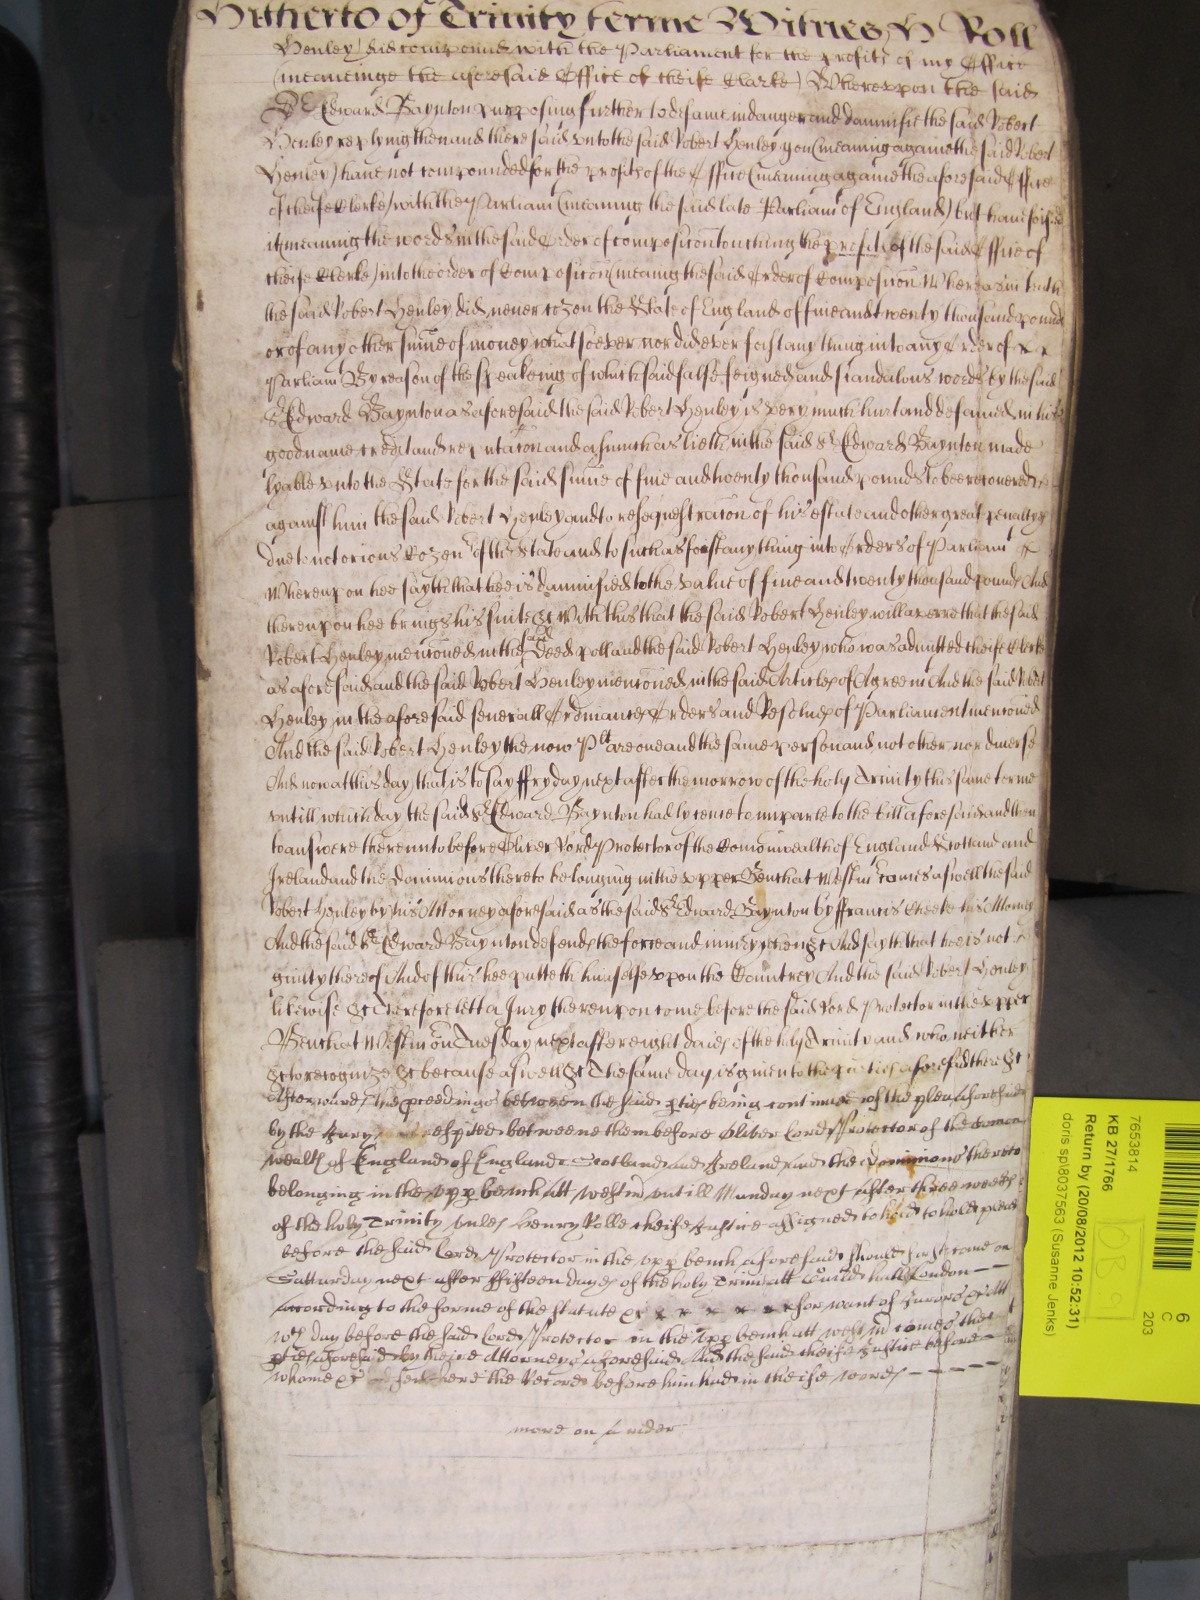 Hitherto of Trinity terme Witnes H Roll
Henley) did compound with the Parliament for the profits of my Office
(meaneinge the aforesaid Office of cheife Clarke) Whereupon the said
Sr Edward Baynton purposing further to defame indanger and damnifie the said Robert
Henley replying then and there said unto the said Robert Henley you (meaning againe the said Robert
Henley) have not compounded for the profits of the Office (meaning againe the aforesaid Office
of cheife Clerke) with the Parliam (meaning the said late Parliam of England) but have foisted
it (meaning the words in the said Order of composicon touching the profits of the said Office of
cheife Clerke) into the order of Composicon (meaning the said Order of Composicon Whereas in truth
the said Robert Henley did never cozen the State of England of five and twenty thousand pounds
or of any other sume of money whatsoever nor did ever foist any thing into any Order of
Parliam By reason of the speakeing of which said false feigned and scandalous words by the said
Sr Edward Baynton as aforesaid the said Robert Henley is very much hurt and defamed in his
good name credit and reputacon and asmuch as lieth in the said Sr Edward Baynton made
lyable unto the State for the said sume of five and twenty thousand pounds to bee recovered
against him the said Robert Henley and to resequestracon of his estate and other great penaltyes
due to notorious Cozenrs of the State and to such as foist any thing into Orders of Parliam
Whereupon hee sayth that hee is damnified to the value of five and twenty thousand pounds And
thereupon hee brings his suite &c With this that the said Robert Henley will averre that the said
Robert Henley mencioned in the said Deed poll and the said Robert Henley who was admitted cheife Clerke
as aforesaid and the said Robert Henley mencioned in the said Articles of Agreemt And the said Robert
Henley in the aforesaid severall Ordinances Orders and Resolves of Parliament mencioned
And the said Robert Henley the now Plt are one and the same person and not other nor diverse
And now at this day that is to say ffryday next after the morrow of the holy Trinity this same terme
untill which day the said Sr Edward Baynton had lycence to imparle to the bill aforesaid and then
to answere thereunto before Oliver Lord Protector of the Comonwealth of England Scotland and
Ireland and the Dominions thereto belonging in the upper Bench at Westmr comes aswell the said
Robert Henley by his Attorney aforesaid as the said Sr Edward Baynton by ffrancis his Attorney
And the said Sr Edward Baynton defends the force and iniury when &c And sayth that hee is not
guilty thereof And of this hee putteth himselfe upon the Countrey And the said Robert Henley
likewise &c Therefore lett a Jury thereupon come before the said Lord Protector in the upper
Bench at Westm on Tuesday next after eight daies of the holy Trinity and who neither
&c to recognize &c because aswell &c The same day is given to the parties aforesaid there &c
Afterwards the proceedings betweene the said pties being continued of the plea aforesaid
by the Jury respited betweene them before Oliver Lord Protector of the Comon
wealth of England of England Scotland and Ireland and the Dominions thereto
belonging in the upp bench att westm untill Munday next after three weekes
of the holy Trinity unles Henry Rolle cheife Justice assigned to hold to hold pleas
before the said Lord Protector in the upp bench aforesaid should first come on
Satturday next after ffifteen dayes of the holy Trin att Guild hall London
according to the forme of the statute &c for want of Jurors &c Att
wch day before the said Lord Protector in the upp bench att westm comes the
pties aforesaid by theire Attorneys aforesaid And the said cheife Justice before
whome &c sent here the Record before him had in theise words
more on ye rider
7653814
KB 27/1766
Return by (20/08/2012 10:52:31)
doris sp\8037563 (Susanne Jenks)
6
C
203